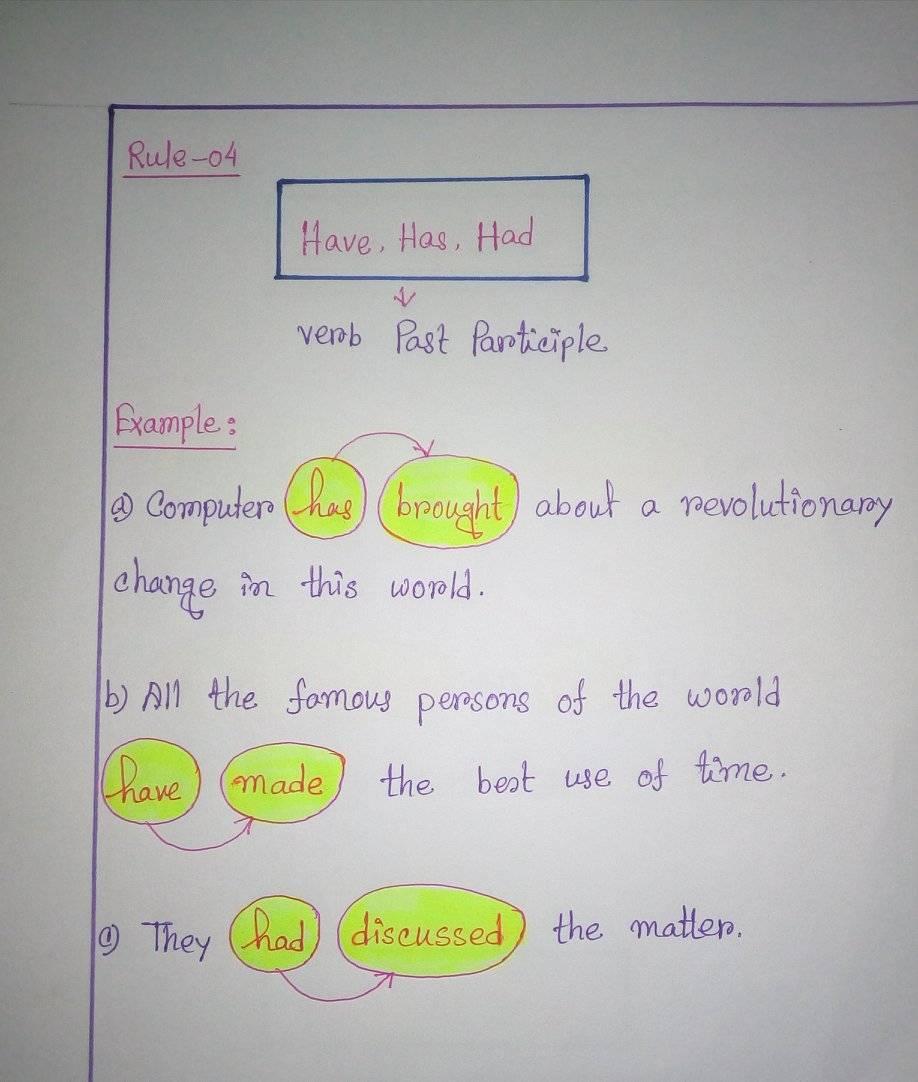 Rule-04
Have, Has, Had
verb Past Participle
Example:
a) Computer has brought about a revolutionary
change in this world.
b) All the famous persons of the world
have made the best use of time.
c) They had discussed the matter.